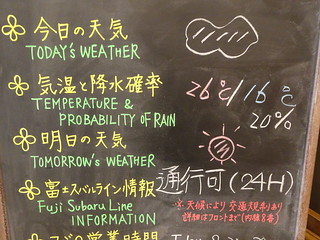 今日の天気
TODAY'S WEATHER
気温と降水確率 26℃/16℃
TEMPERATURE &
PROBABILITY OF RAIN 20%
明日の天気
TOMORROW'S WEATHER
富士スバルライン情報 通行可(24H)
Fuji Subaru Line
INFORMATION
※天候により交通規制あり
詳細はフロントまで(内線8番)
営業時間